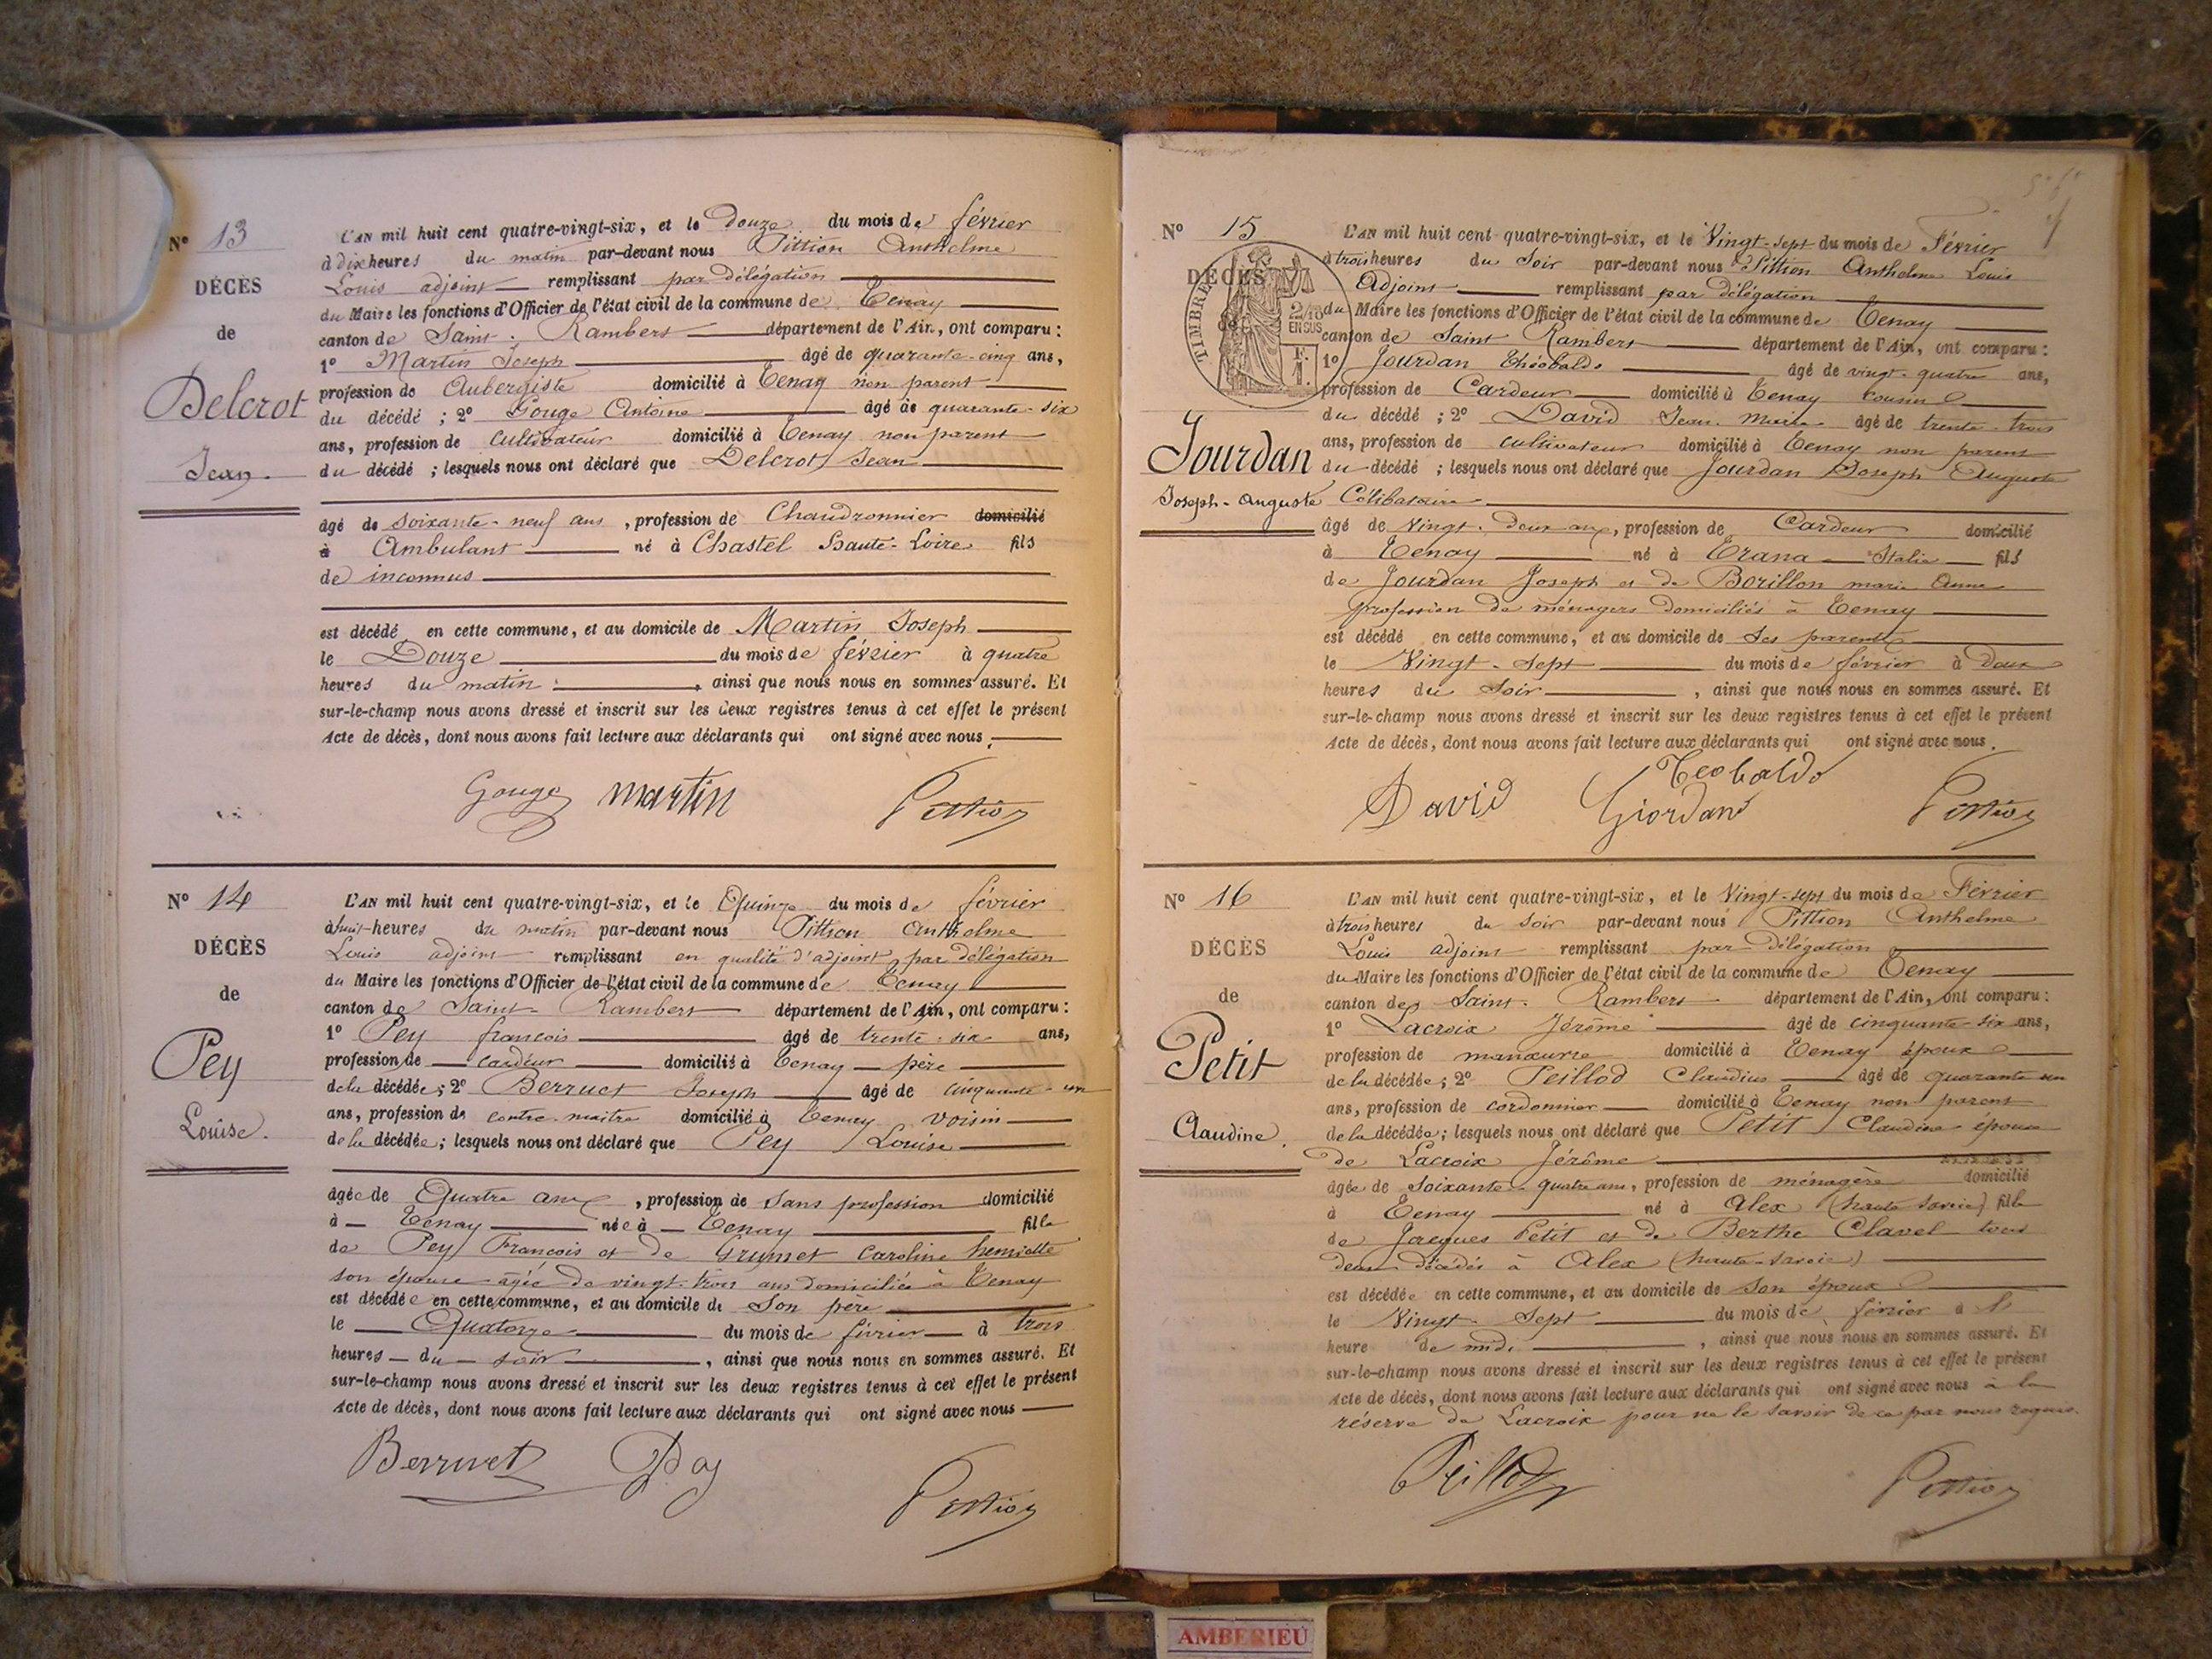 Nº 13
DÉCÈS
de
Delcrot
Jean.
L'AN mil huit cent quatre-vingt-six, et le Douze du mois de février
à dix heures du matin par-devant nous Pittion Anthelme
Louis adjoint remplissant par délégation
du Maire les fonctions d'Officier de l'état civil de la commune de Tenay
canton de Saint-Rambert département de l'Ain, ont comparu :
1º Martin Joseph âgé de quarante-cinq ans,
profession de Aubergiste domicilié à Tenay non parent
du décédé ; 2º Gouge Antoine âgé de quarante-six
ans, profession de cultivateur domicilié à Tenay non parent
du décédé ; lesquels nous ont déclaré que Delcrot Jean
âgé de soixante-neuf ans, profession de Chaudronnier domicilié
à Ambulant né à Chastel Haute-Loire fils
de inconnus
est décédé en cette commune, et au domicile de Martin Joseph
le Douze du mois de février à quatre
heures du matin, ainsi que nous nous en sommes assuré. Et
sur-le-champ nous avons dressé et inscrit sur les deux registres tenus à cet effet le présent
Acte de décès, dont nous avons fait lecture aux déclarants qui ont signé avec nous.
Gouge martin Pittion
Nº 14
DÉCÈS
de
Pey
Louise.
L'AN mil huit cent quatre-vingt-six, et le Quinze du mois de février
à huit heures du matin par-devant nous Pittion Anthelme
Louis adjoint remplissant en qualité d'adjoint par délégation
du Maire les fonctions d'Officier de l'état civil de la commune de Tenay
canton de Saint-Rambert département de l'Ain, ont comparu :
1º Pey françois âgé de trente-six ans,
profession de cardeur domicilié à Tenay père
de la décédée ; 2º Berruet Joseph âgé de cinquante-un
ans, profession de contre-maître domicilié à Tenay voisin
de la décédée ; lesquels nous ont déclaré que Pey Louise
âgée de Quatre ans, profession de Sans profession domicilié
à Tenay née à Tenay fille
de Pey François et de Grumet Caroline henriette
son épouse âgée de vingt-trois ans domiciliée à Tenay
est décédée en cette commune, et au domicile de Son père
le Quatorze du mois de février à trois
heures du soir, ainsi que nous nous en sommes assuré. Et
sur-le-champ nous avons dressé et inscrit sur les deux registres tenus à cet effet le présent
Acte de décès, dont nous avons fait lecture aux déclarants qui ont signé avec nous
Berruet Pey Pittion
Nº 15
DÉCÈS
de
TIMBRE
2/10 EN SUS
F. 1
Jourdan
Joseph-Auguste
L'AN mil huit cent quatre-vingt-six, et le Vingt-sept du mois de Février
à trois heures du Soir par-devant nous Pittion Anthelme Louis
Adjoint remplissant par délégation
du Maire les fonctions d'Officier de l'état civil de la commune de Tenay
canton de Saint Rambert département de l'Ain, ont comparu :
1º Jourdan Théobaldo âgé de vingt-quatre ans,
profession de Cardeur domicilié à Tenay cousin
du décédé ; 2º David Jean-Marie âgé de trente-trois
ans, profession de cultivateur domicilié à Tenay non parent
du décédé ; lesquels nous ont déclaré que Jourdan Joseph Auguste
Célibataire
âgé de Vingt-deux ans, profession de Cardeur domicilié
à Tenay né à Italie fils
de Jourdan Joseph et de Borillon marie Anne
profession de ménagers domiciliés à Tenay
est décédé en cette commune, et au domicile de Ses parents
le Vingt-Sept du mois de février à Deux
heures du Soir, ainsi que nous nous en sommes assuré. Et
sur-le-champ nous avons dressé et inscrit sur les deux registres tenus à cet effet le présent
Acte de décès, dont nous avons fait lecture aux déclarants qui ont signé avec nous.
David Teobaldo Giordano Pittion
Nº 16
DÉCÈS
de
Petit
Claudine.
L'AN mil huit cent quatre-vingt-six, et le Vingt-sept du mois de Février
à trois heures du Soir par-devant nous Pittion Anthelme
Louis adjoint remplissant par délégation
du Maire les fonctions d'Officier de l'état civil de la commune de Tenay
canton de Saint-Rambert département de l'Ain, ont comparu :
1º Lacroix Jérôme âgé de cinquante-six ans,
profession de manœuvre domicilié à Tenay époux
de la décédée ; 2º Peillod Claudius âgé de quarante un
ans, profession de cordonnier domicilié à Tenay non parent
de la décédée ; lesquels nous ont déclaré que Petit Claudine épouse
de Lacroix Jérôme
âgée de Soixante-quatre ans, profession de ménagère domicilié
à Tenay né à Alex (haute Savoie) fille
de Jacques Petit et de Berthe Clavel tous
deux décédés à Alex (haute-Savoie)
est décédée en cette commune, et au domicile de Son époux
le Vingt-Sept du mois de février à
heure de midi, ainsi que nous nous en sommes assuré. Et
sur-le-champ nous avons dressé et inscrit sur les deux registres tenus à cet effet le présent
Acte de décès, dont nous avons fait lecture aux déclarants qui ont signé avec nous à la
réserve de Lacroix pour ne le savoir de ce par nous requis.
Peillod Pittion
AMBERIEU